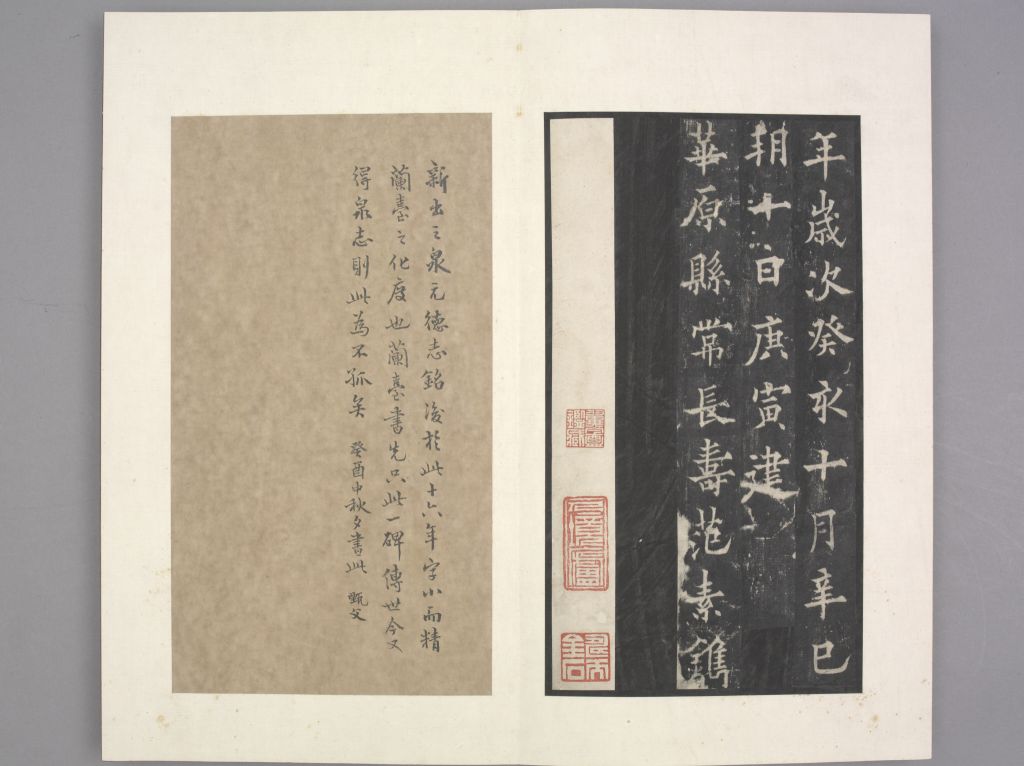 年歲次癸亥十月辛巳
朔十日庚寅建
華原縣常長壽范素鐫
新出之泉元德志銘後於此十六年字小而精
蘭臺之化度也蘭臺書先只此一碑傳世今又
得泉志則此為不孤矣 癸酉中秋夕書此 甄父